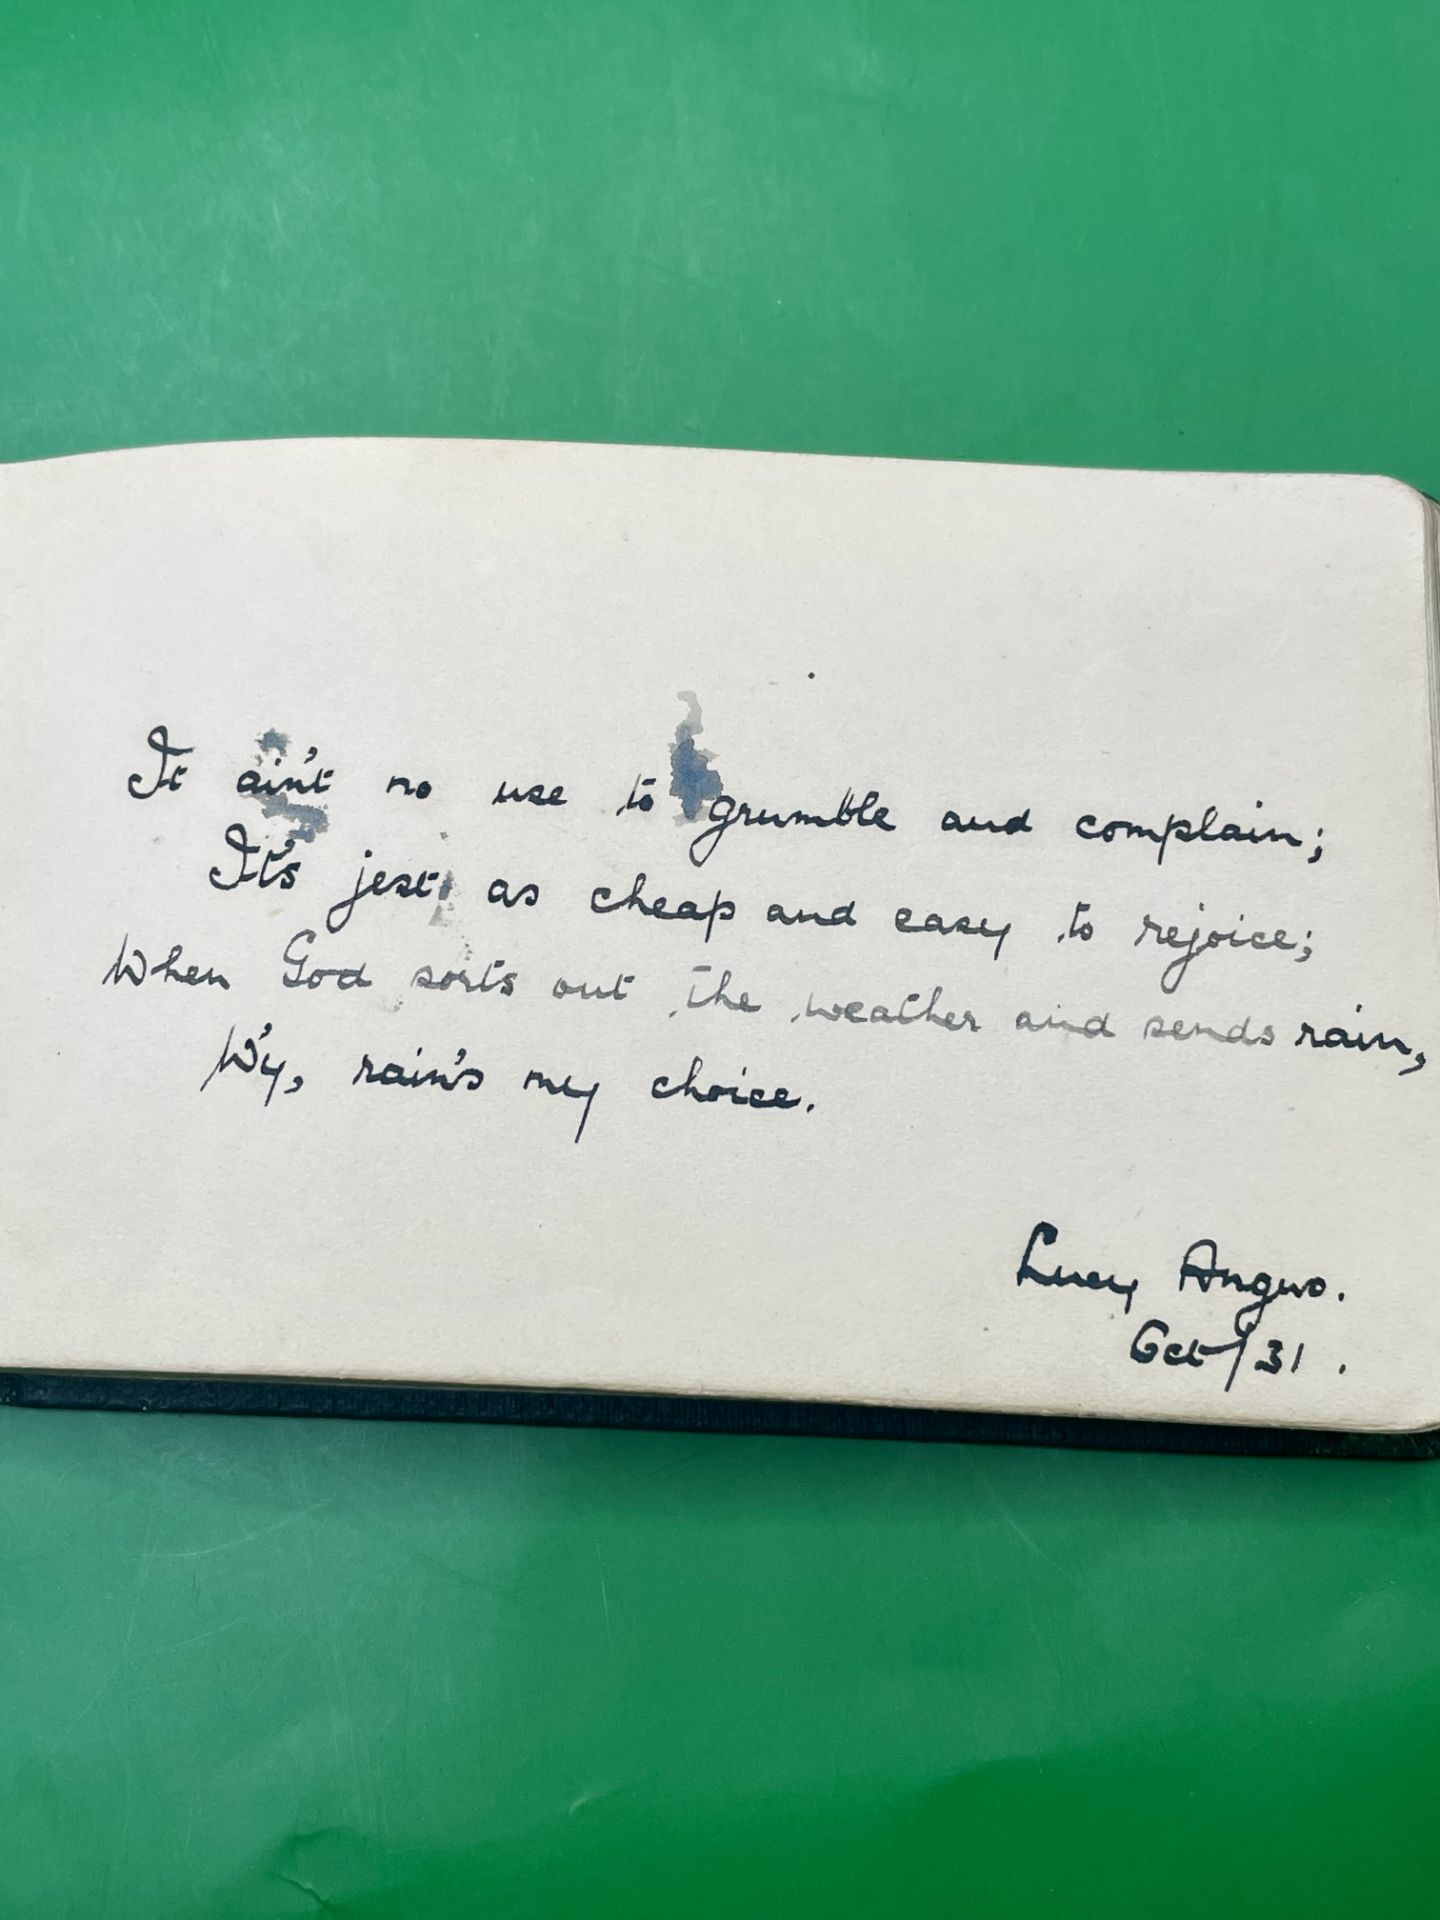 It ain't no use to grumble and complain;
It's jest as cheap and easy to rejoice;
When God sorts out the weather and sends rain,
W'y, rain's my choice.
Lucy Angus.
Oct/31.